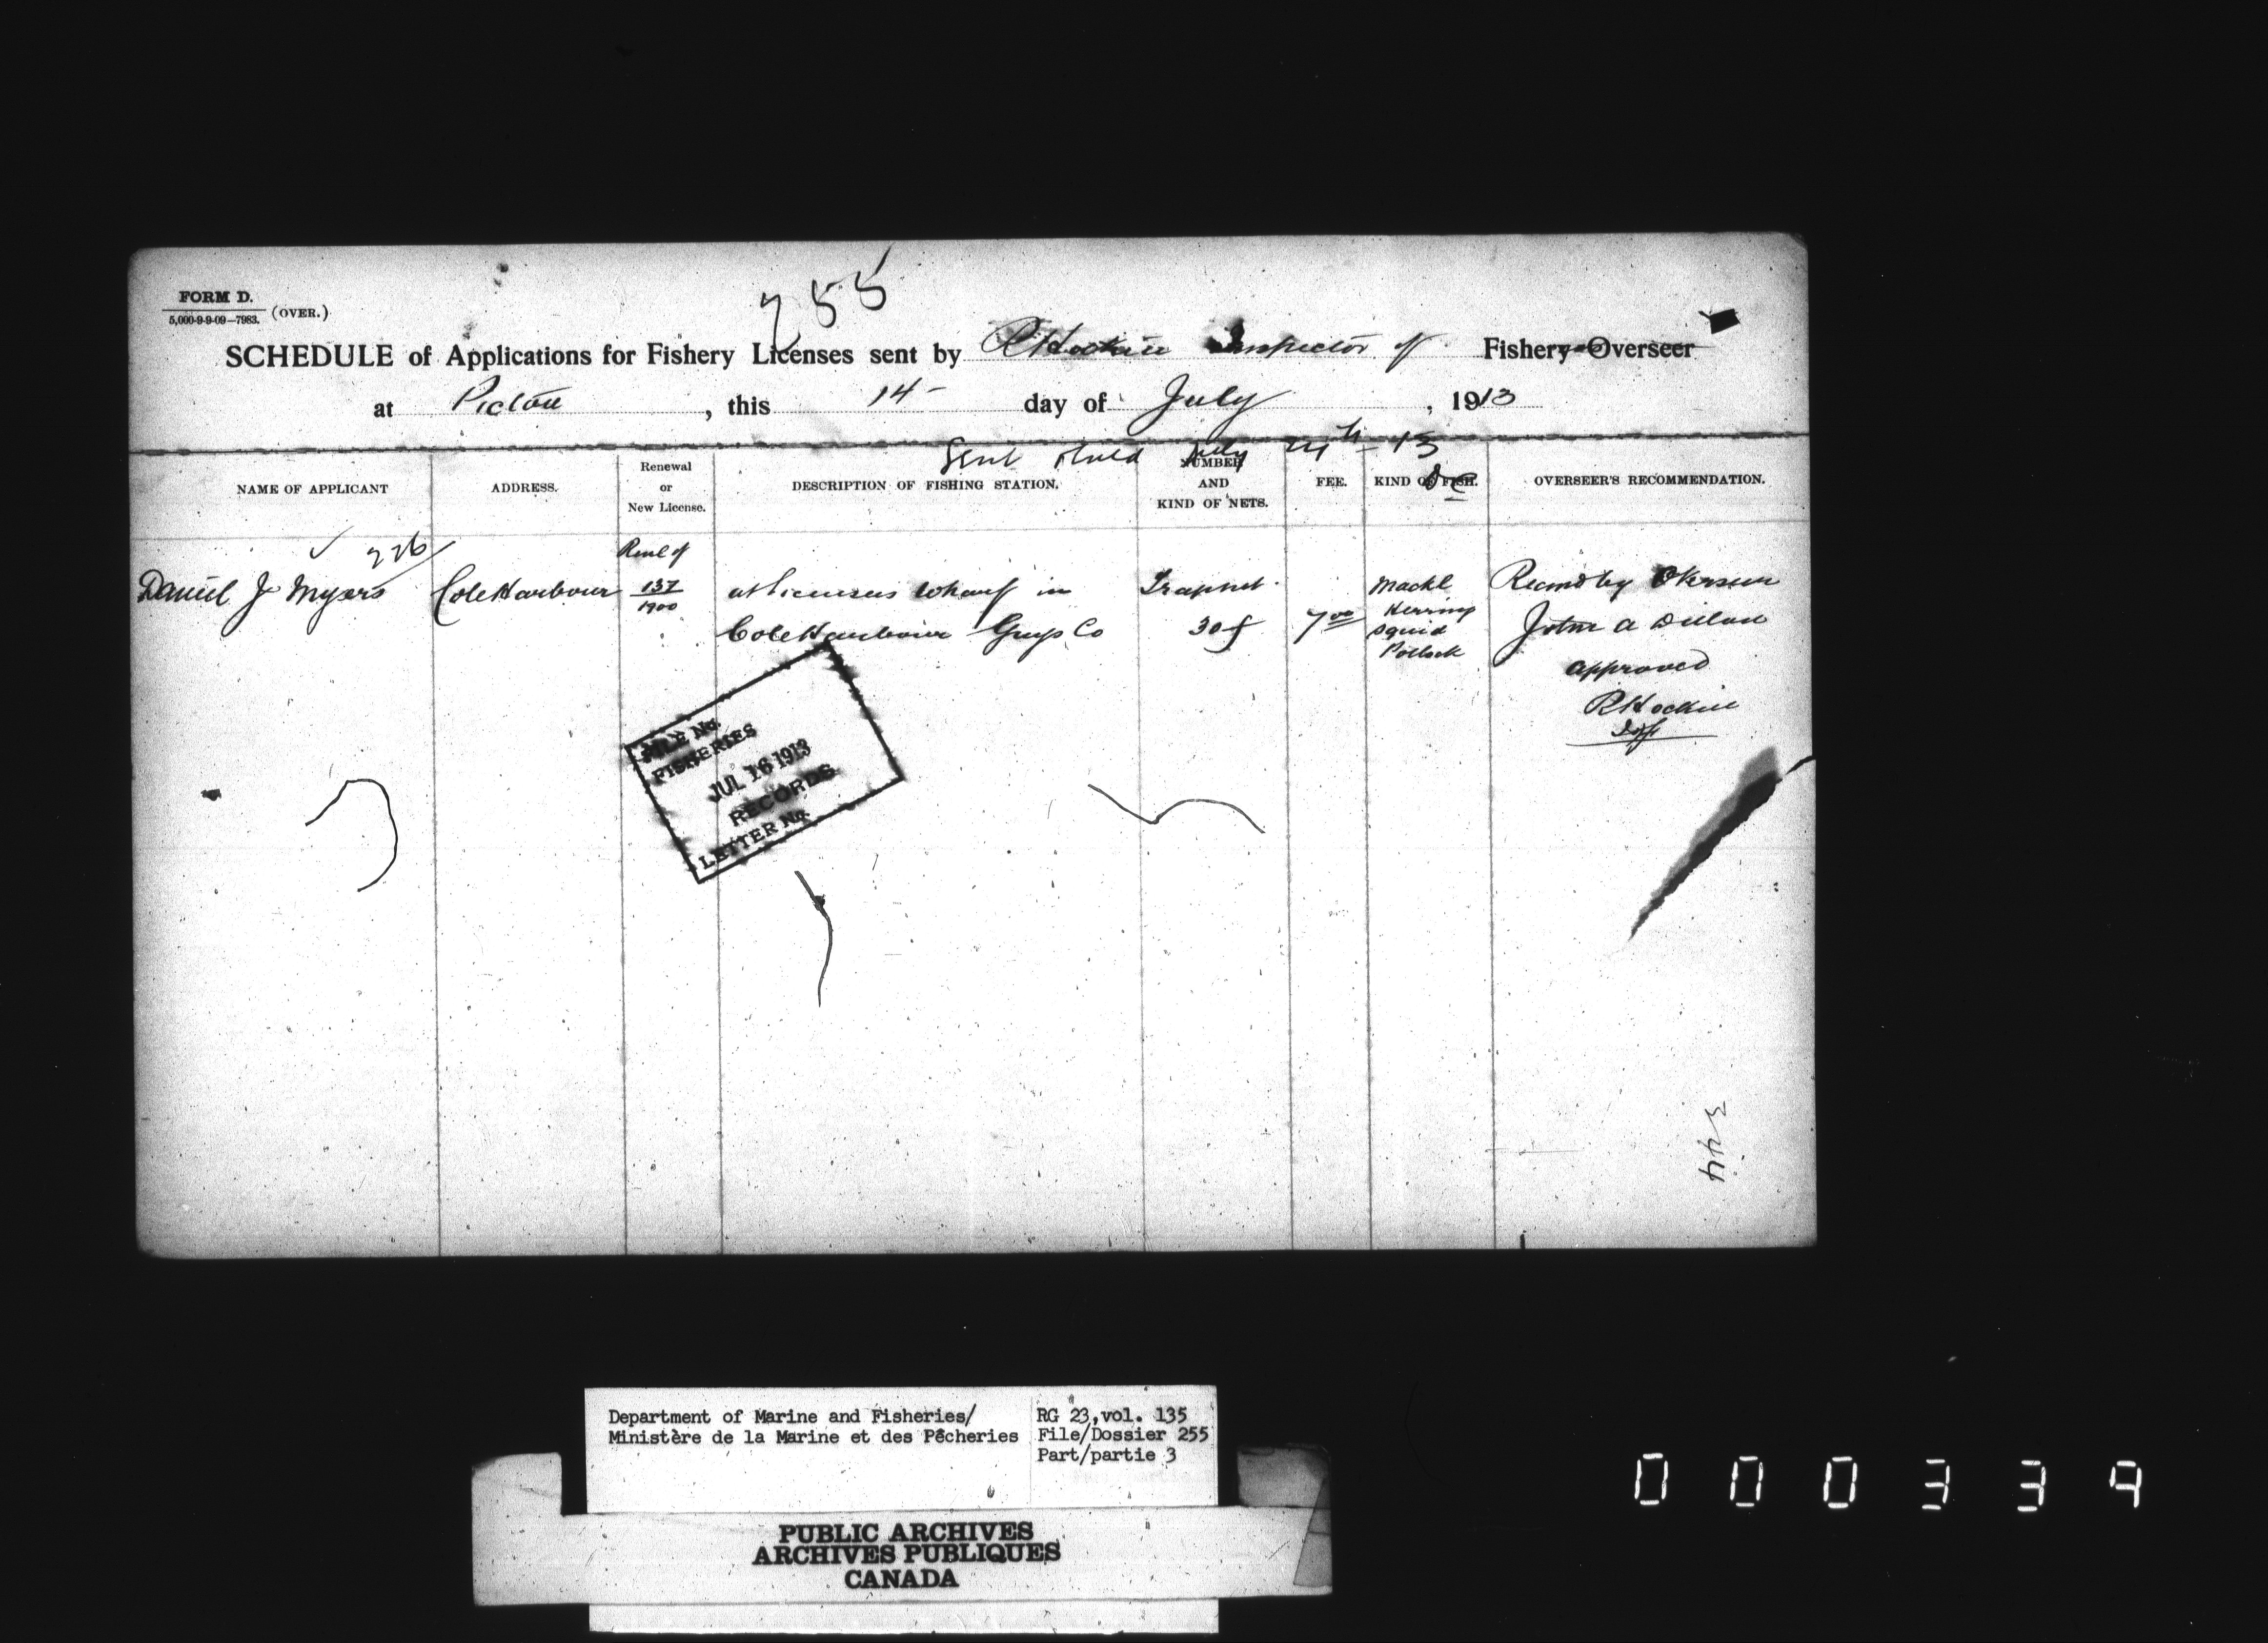 255
FORM D.
5,000-9-9-09—7983.
(OVER.)
SCHEDULE of Applications for Fishery Licenses sent by R Hockin Inspector of Fishery Overseer
at Pictou, this 14 day of July, 1913
Sent July 24th - 13
NAME OF APPLICANT
ADDRESS.
Renewal
or
New License.
DESCRIPTION OF FISHING STATION.
NUMBER
AND
KIND OF NETS.
FEE.
KIND OF FISH.
OVERSEER'S RECOMMENDATION.
226
Daniel J Myers
Cole Harbour
Renl of
137
1900
at licensees Wharf in
Cole Harbour Guys Co
Trapnet
30 f
7 00
Mackl
Herring
Squid
Pollock
Recmd by Overseer
John A Dillon
approved
R Hockin
Insp
FILE No.
FISHERIES
JUL 16 1913
RECORDS
LETTER No.
344
Department of Marine and Fisheries/
Ministère de la Marine et des Pêcheries
RG 23,vol. 135
File/Dossier 255
Part/partie 3
PUBLIC ARCHIVES
ARCHIVES PUBLIQUES
CANADA
000339